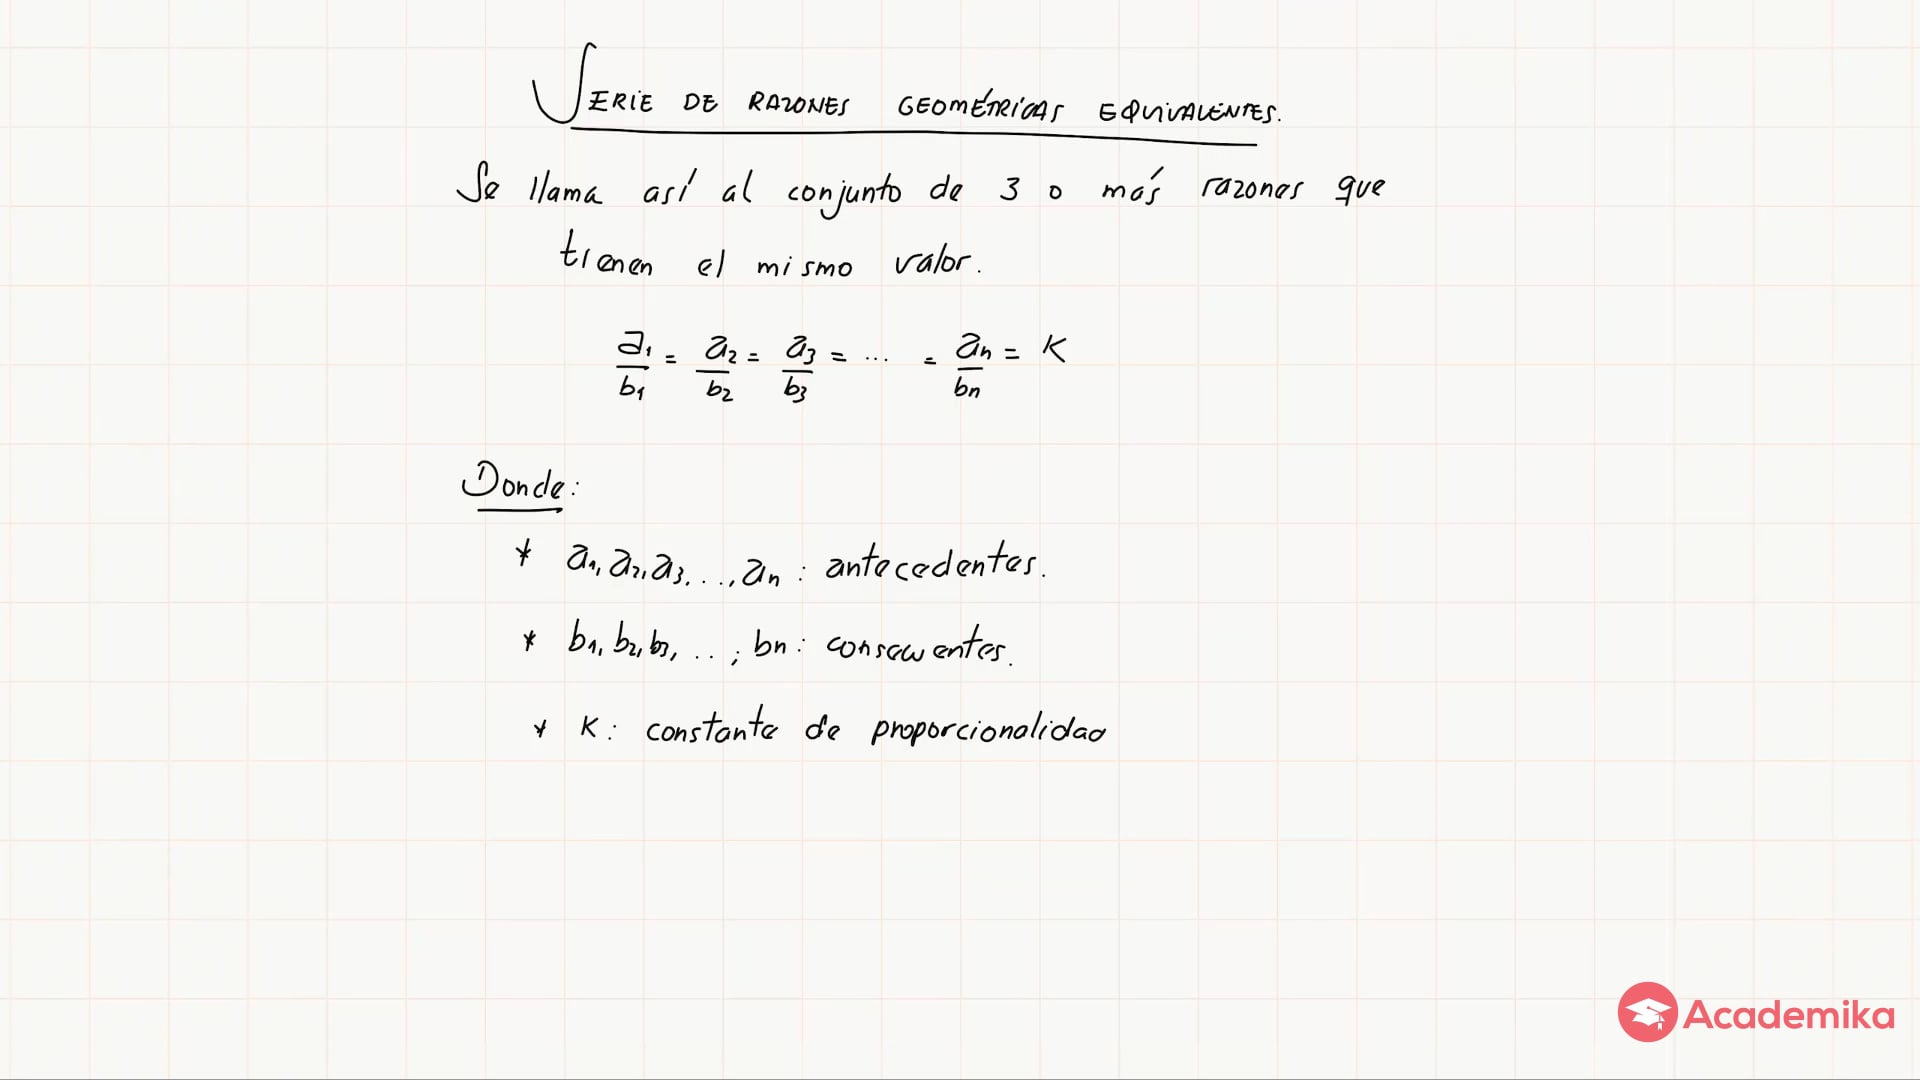 SERIE DE RAZONES GEOMÉTRICAS EQUIVALENTES.
Se llama así al conjunto de 3 o más razones que
tienen el mismo valor.
a₁/b₁ = a₂/b₂ = a₃/b₃ = ... = aₙ/bₙ = K
Donde:
* a₁, a₂, a₃, ..., aₙ : antecedentes.
* b₁, b₂, b₃, ..; bₙ : consecuentes.
* K : constante de proporcionalidad
Academika